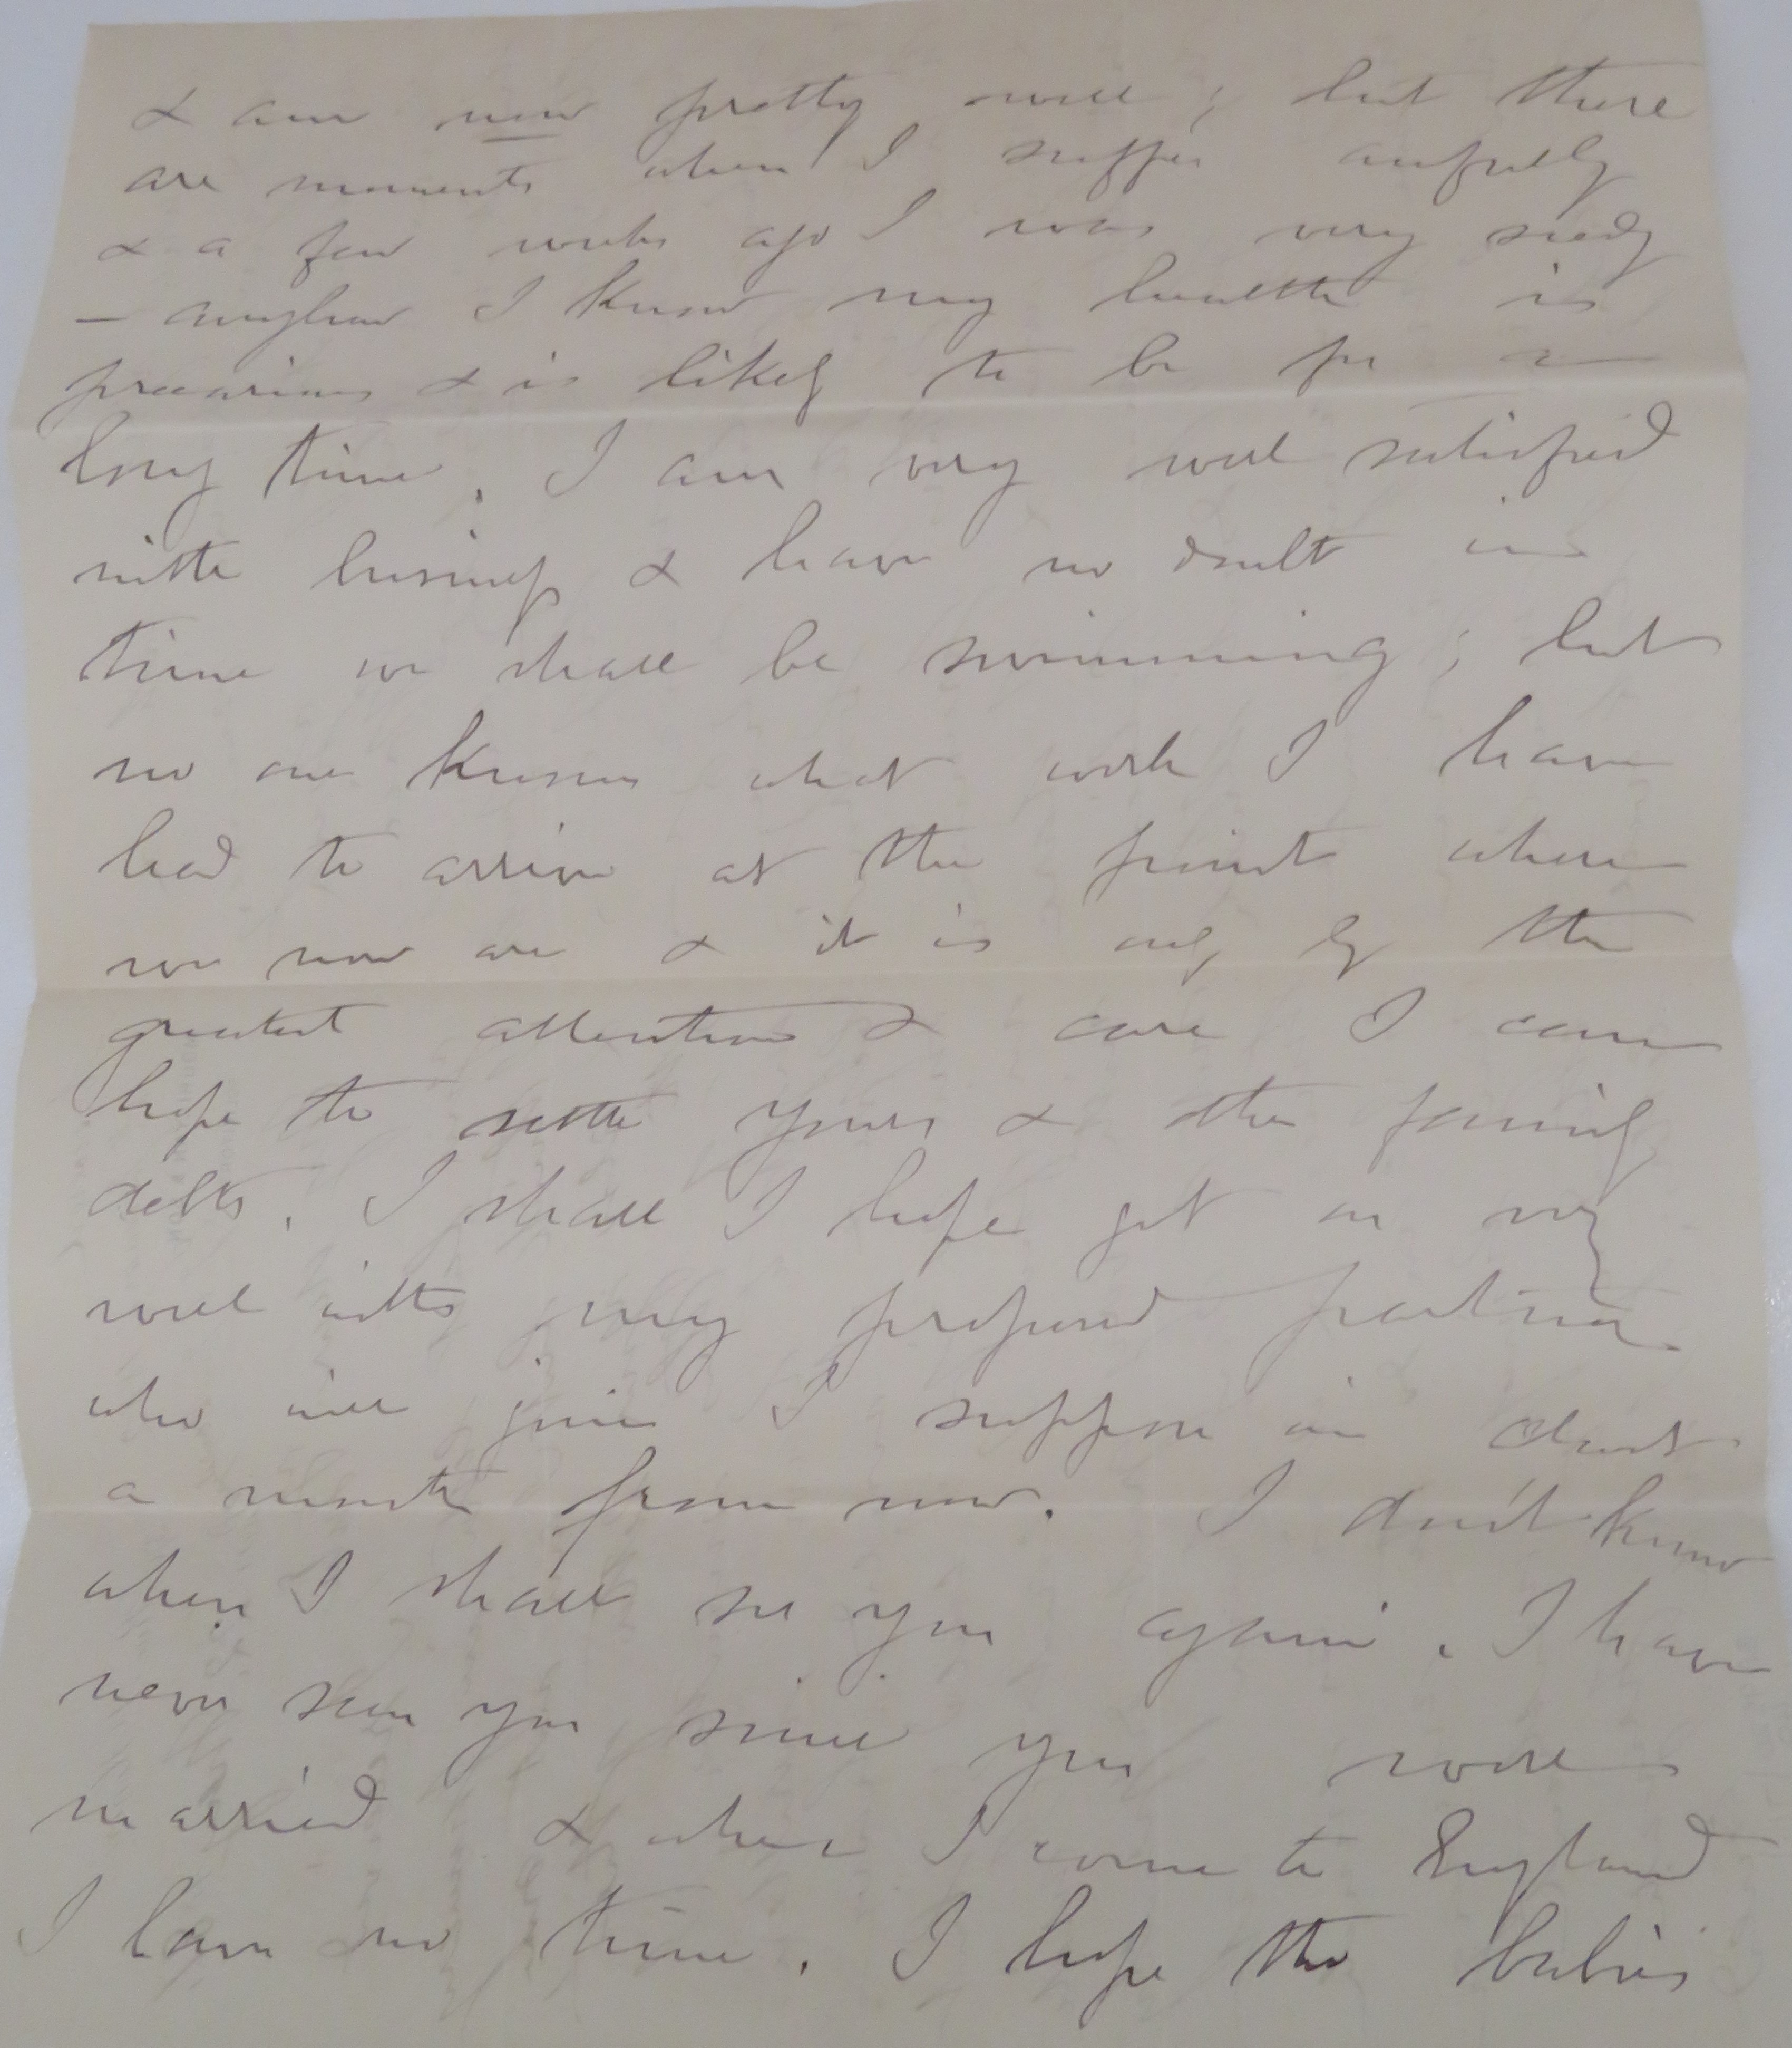 & am now pretty well; but there
are moments when I suffer awfully
& a few weeks ago I was very seedy
— anyhow I know my health is
precarious & is likely to be for a
long time. I am very well satisfied
with business & have no doubt in
time we shall be swimming; but
no one knows what work I have
had to arrive at the point where
we now are & it is only by the
greatest attention & care I can
hope to settle yours & the family
debts. I shall I hope get on very
well with my proposed partner
who will join I suppose in about
a month from now. I don't know
when I shall see you again. I have
never seen you since you were
married & when I come to England
I have no time. I hope the babies